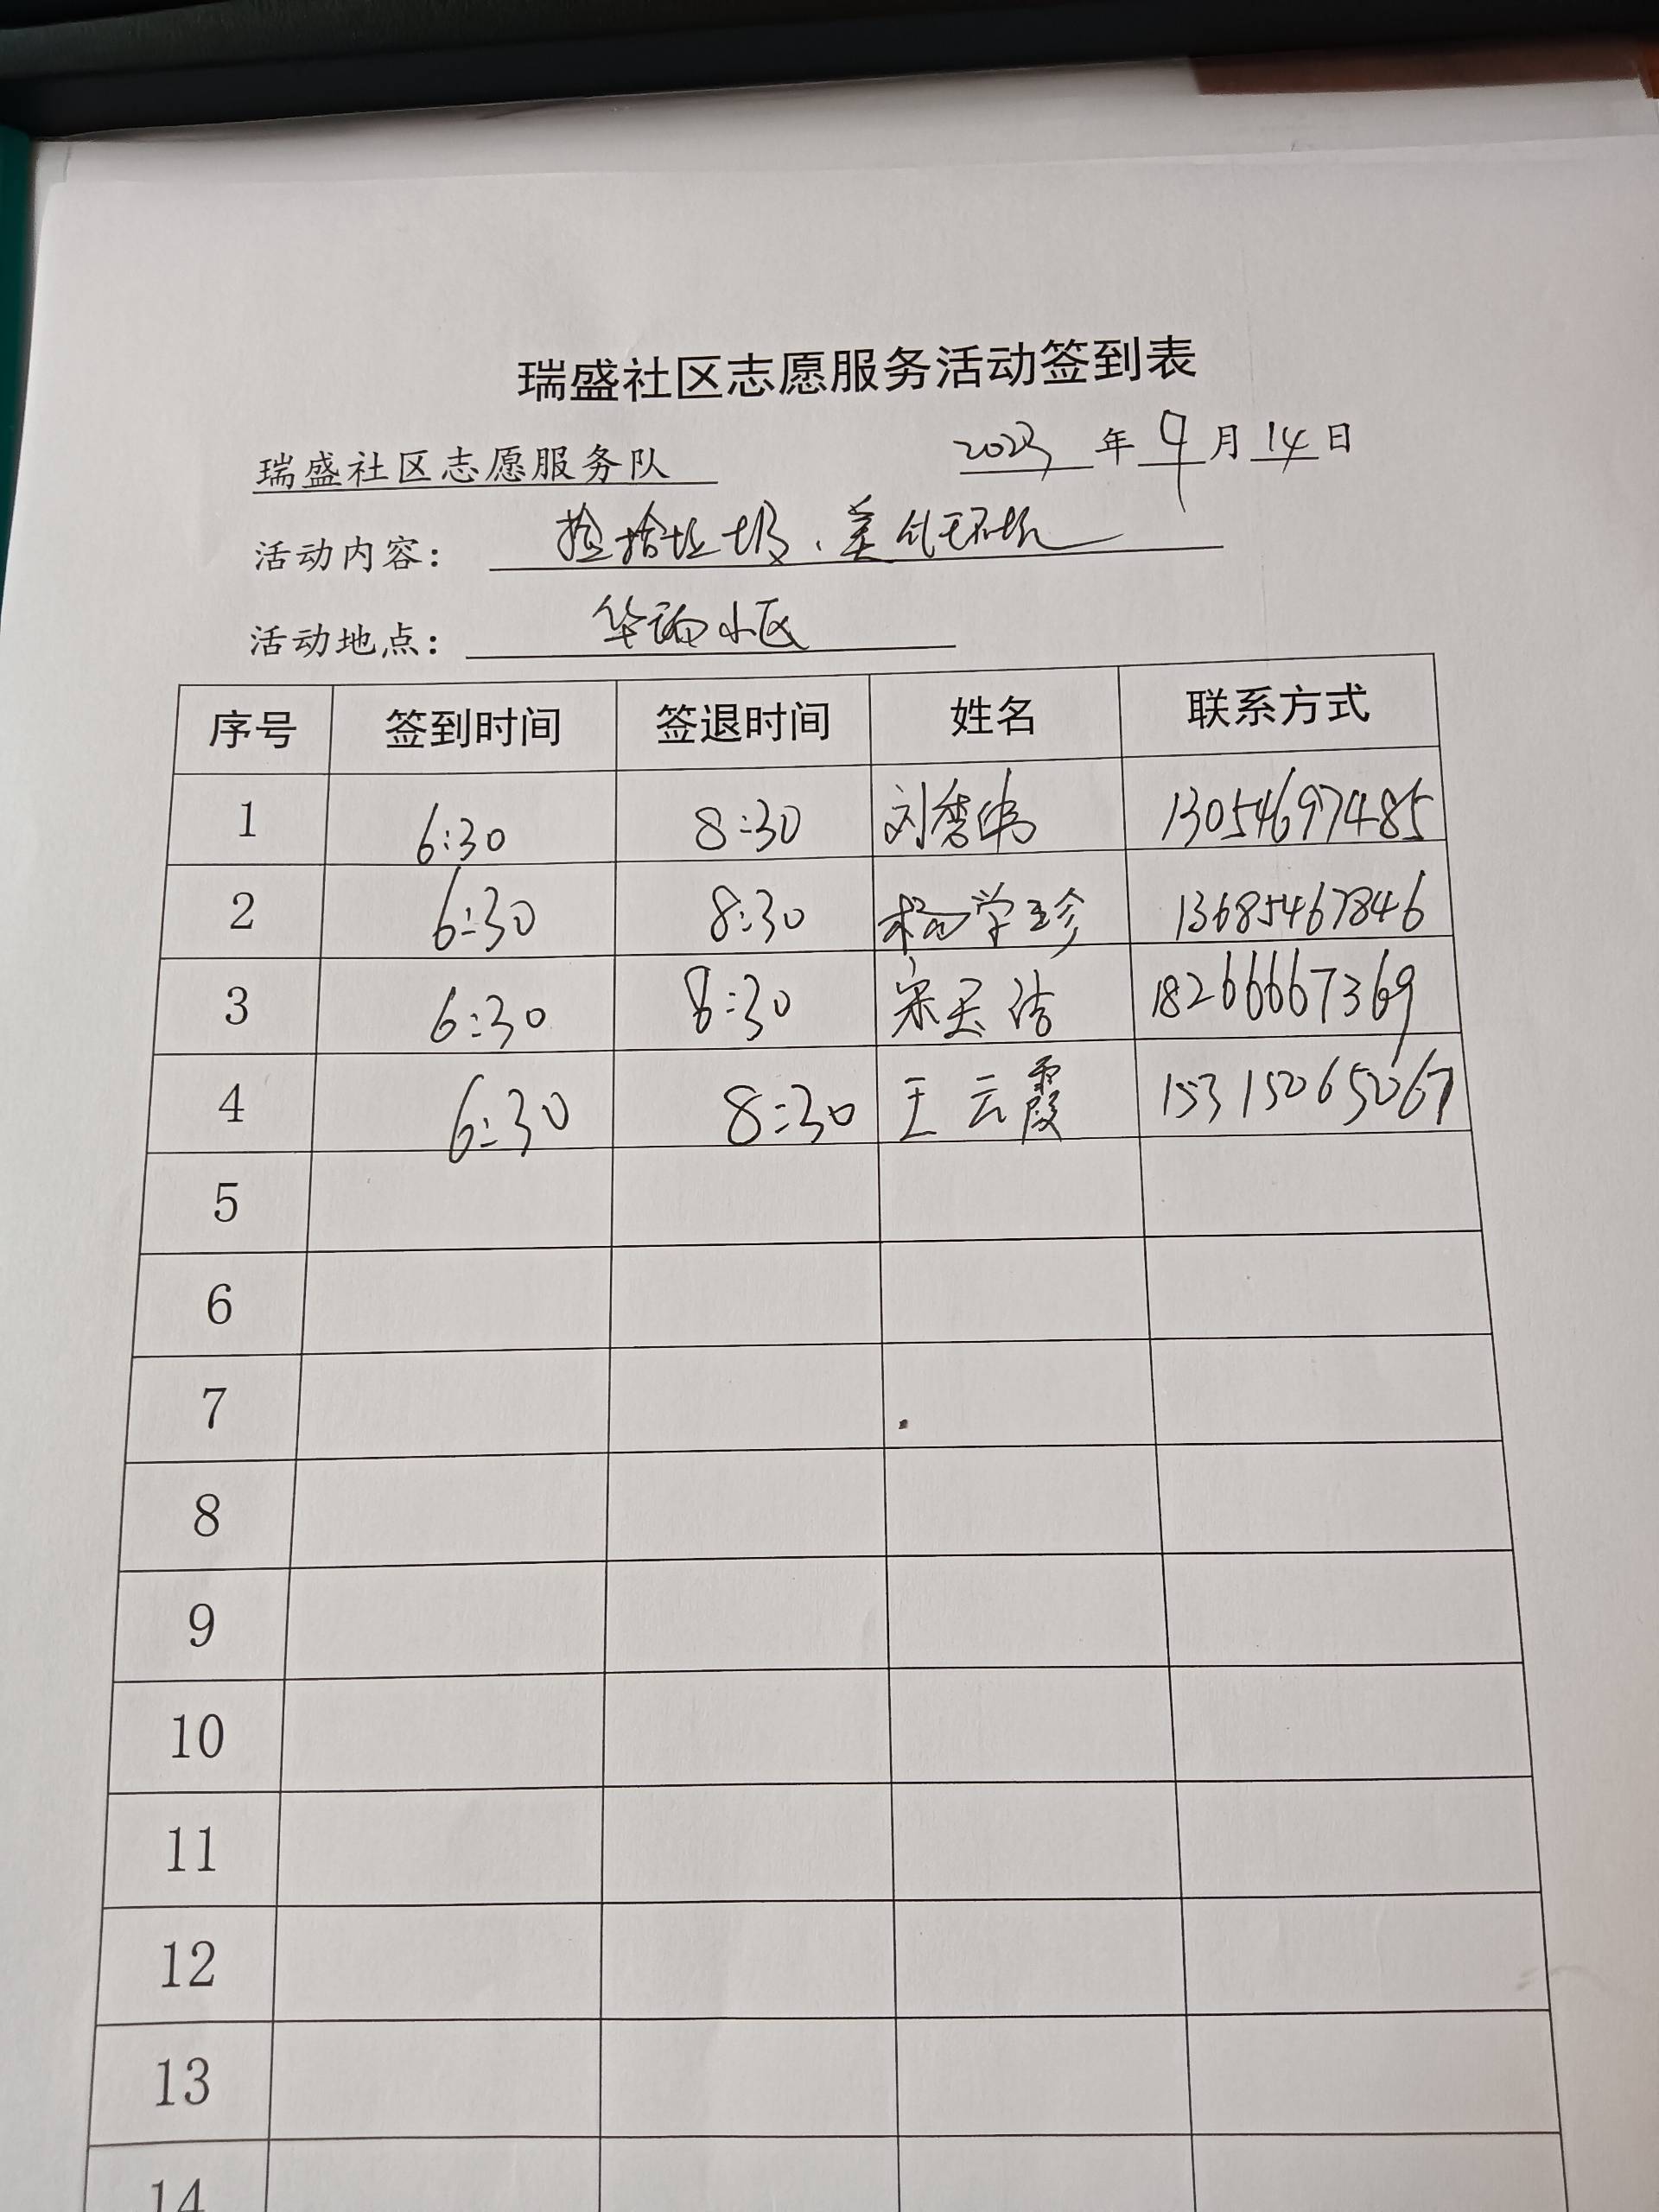 瑞盛社区志愿服务活动签到表
瑞盛社区志愿服务队 2023年9月14日
活动内容：捡拾垃圾、美化环境
活动地点：华瑞小区
序号 签到时间 签退时间 姓名 联系方式
1 6:30 8:30 刘秀娟 13054697485
2 6:30 8:30 杨学珍 13685467846
3 6:30 8:30 宋天浩 18266667369
4 6:30 8:30 王云霞 15315065067
5
6
7
8
9
10
11
12
13
14